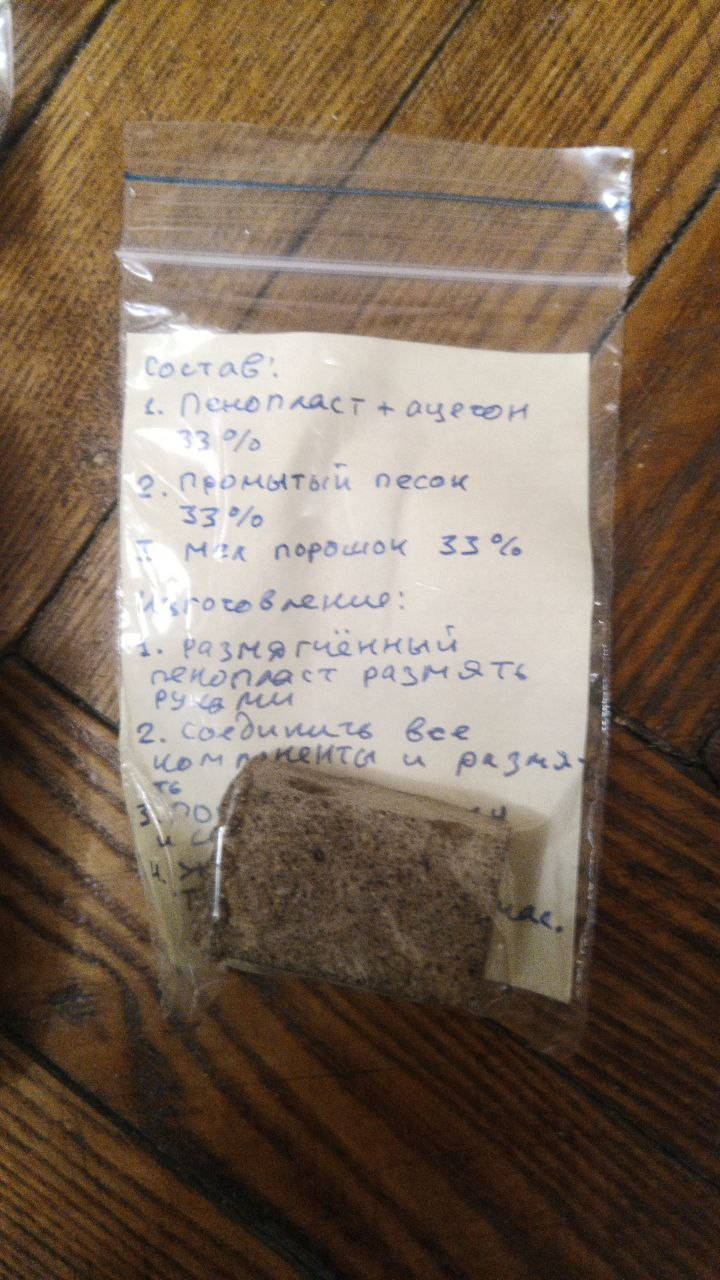 Состав:
1. Пенопласт + ацетон
33%
2. Промытый песок
33%
порошок 33%
Изготовление:
1. Размягчённый
пенопласт размять
руками
2. Соединить все
компоненты и размя-
ть
3. по
и
4.
час.